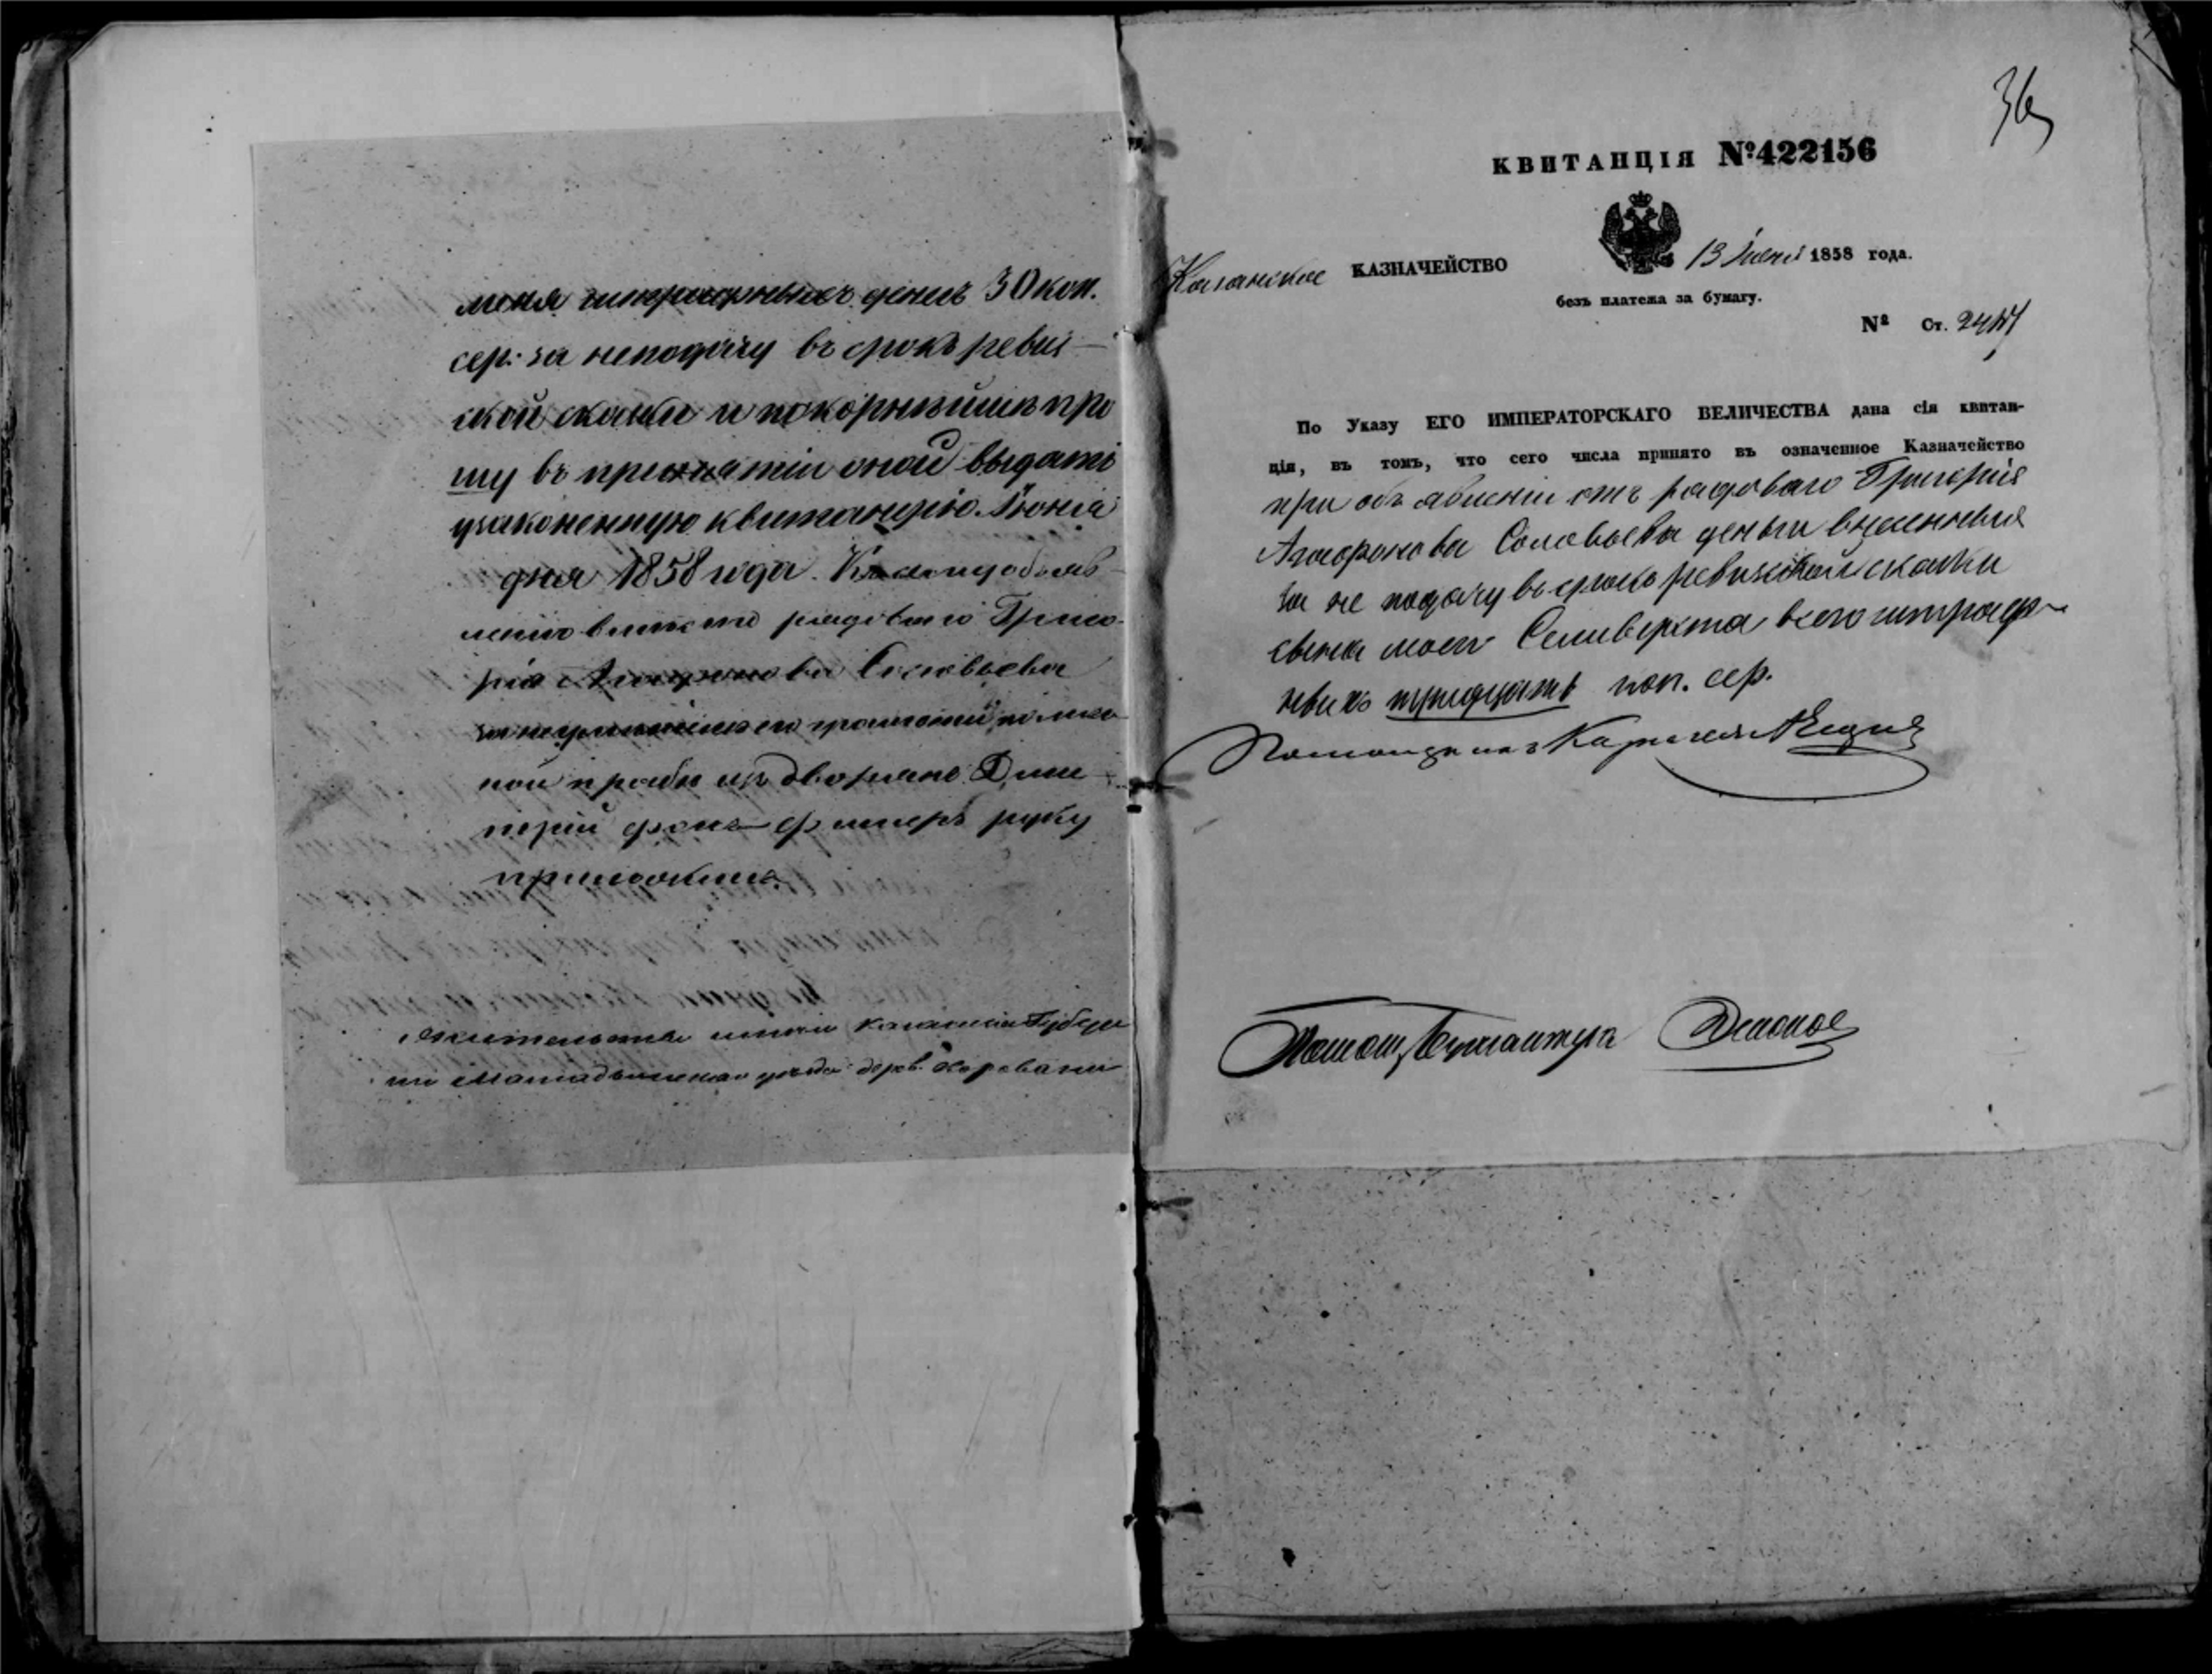 меня штрафныхъ денегъ 30 коп.
сер: за неподачу въ срокъ ревиз-
ской сказки и покорнѣйше про
шу въ принятіи оной выдать
узаконенную квитанцію. Іюня
дня 1858 года. Къ сему объяв-
ленію вместо рядоваго Григо-
рія Агафонова Соловьева
за неуменіемъ его грамоте по лич
ной прозбе из дворянъ Дми-
трій фонъ- руку
приложилъ
жительство имею Казанской Губер
ніи Мамадышскаго уезда дерев.
36
КВИТАНЦІЯ №422156
Казанское КАЗНАЧЕЙСТВО 13 Іюня 1858 года.
безъ платежа за бумагу.
№ Ст.
По Указу ЕГО ИМПЕРАТОРСКАГО ВЕЛИЧЕСТВА дана сія квитан-
ція, въ томъ, что сего числа принято въ означенное Казначейство
при объявленіи отъ рядоваго Григорія
Агафонова Соловьева деньги
за не подачу въ срокъ ревизской сказки
сына моего Селиверста всего штраф-
ныхъ тридцать коп. сер.
Помощникъ Казначея
Помощ. Бухгалтера